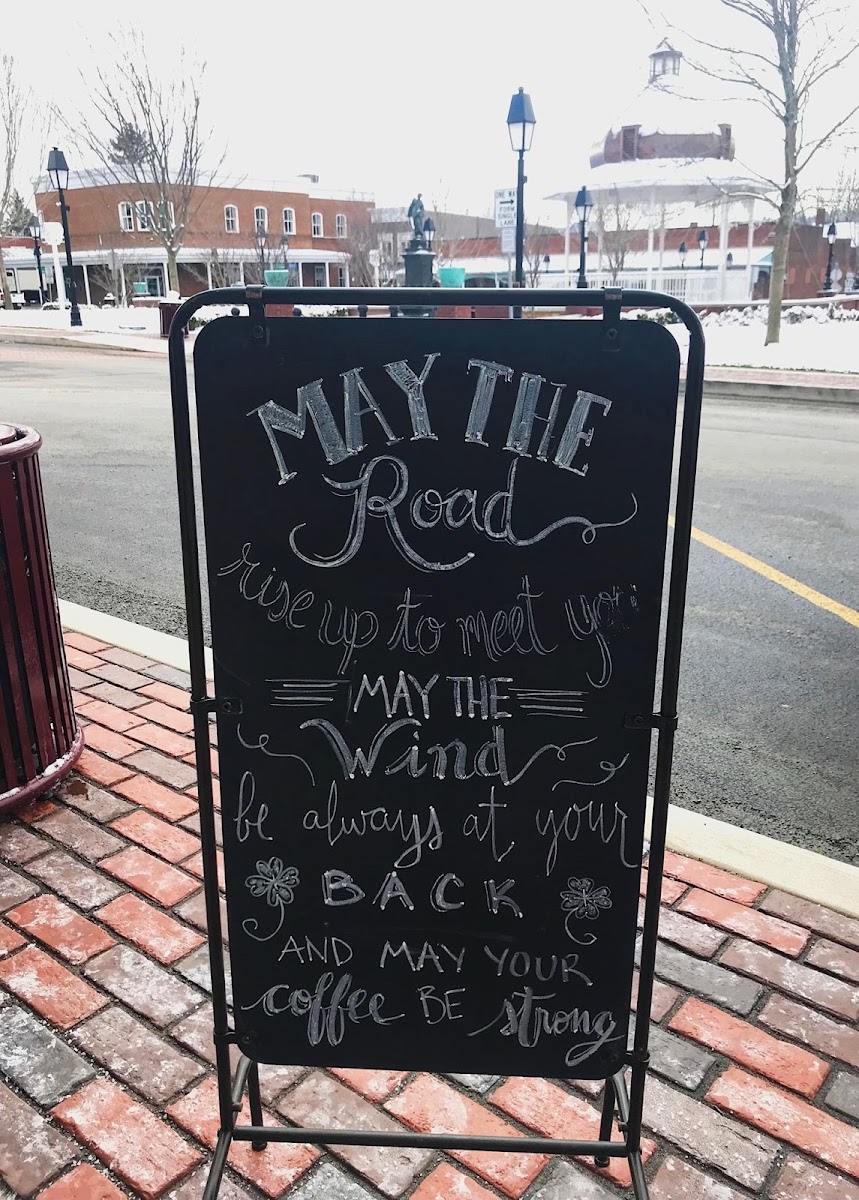 ONE WAY
SINGLE
LANE
MAY THE
Road
rise up to meet you
MAY THE
Wind
be always at your
BACK
AND MAY YOUR
coffee BE strong